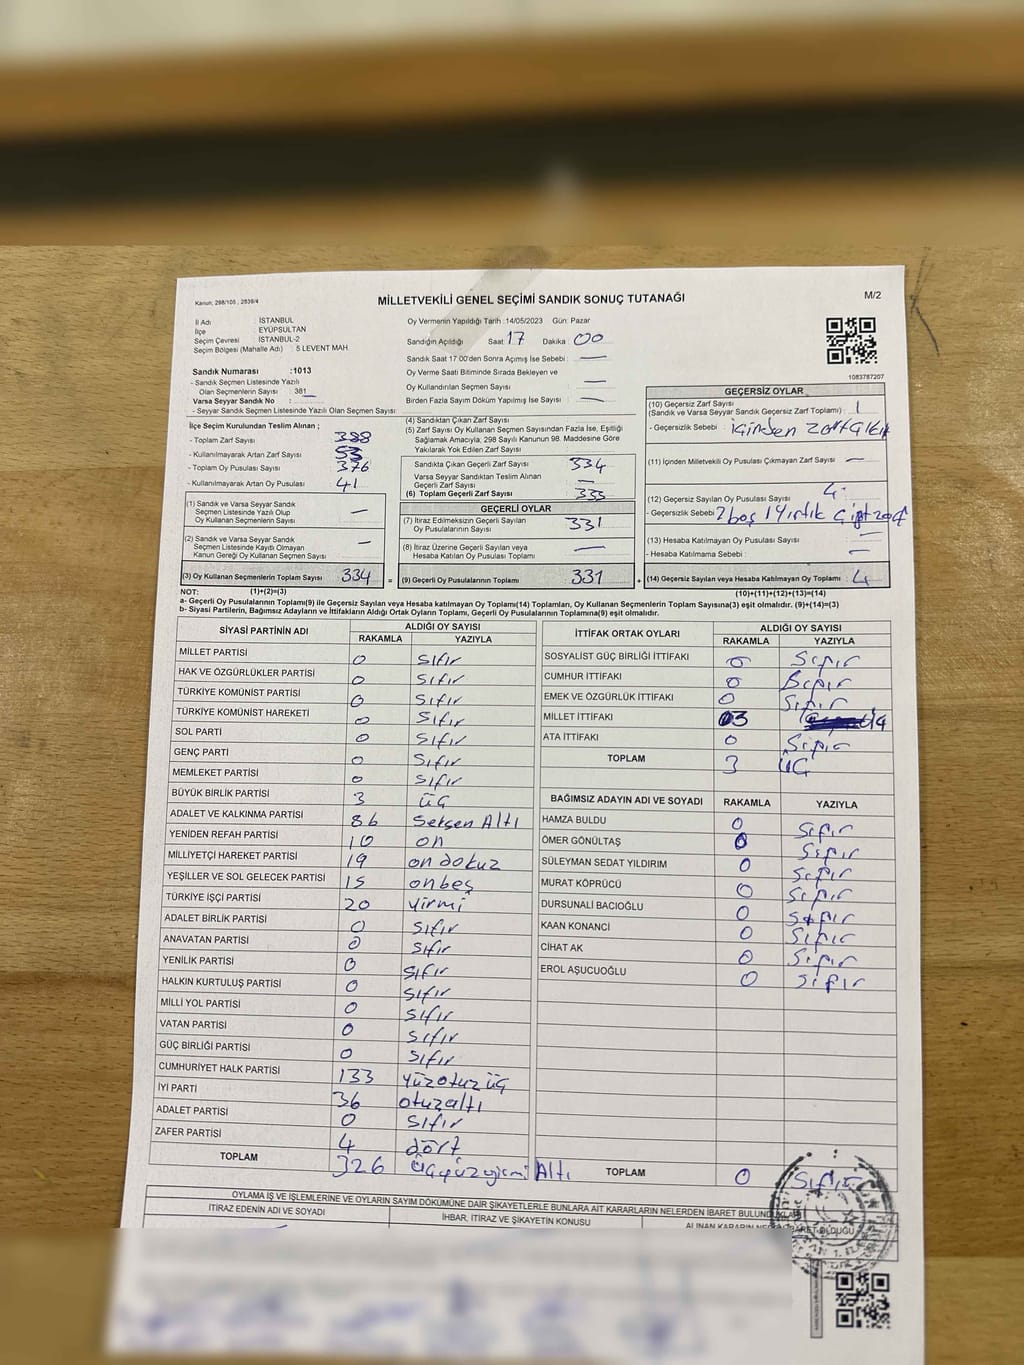 Kanun; 298/105 , 2839/4
MİLLETVEKİLİ GENEL SEÇİMİ SANDIK SONUÇ TUTANAĞI
M/2
İl Adı İSTANBUL
İlçe EYÜPSULTAN
Seçim Çevresi : İSTANBUL-2
Seçim Bölgesi (Mahalle Adı) : 5 LEVENT MAH.
Sandık Numarası :1013
- Sandık Seçmen Listesinde Yazılı
Olan Seçmenlerin Sayısı : 381
Varsa Seyyar Sandık No :
- Seyyar Sandık Seçmen Listesinde Yazılı Olan Seçmen Sayısı
İlçe Seçim Kurulundan Teslim Alınan ;
- Toplam Zarf Sayısı 388
- Kullanılmayarak Artan Zarf Sayısı 53
- Toplam Oy Pusulası Sayısı 376
- Kullanılmayarak Artan Oy Pusulası 41
(1) Sandık ve Varsa Seyyar Sandık
Seçmen Listesinde Yazılı Olup
Oy Kullanan Seçmenlerin Sayısı —
(2) Sandık ve Varsa Seyyar Sandık
Seçmen Listesinde Kayıtlı Olmayan
Kanun Gereği Oy Kullanan Seçmen Sayısı —
(3) Oy Kullanan Seçmenlerin Toplam Sayısı 334 =
Oy Vermenin Yapıldığı Tarih :14/05/2023 Gün: Pazar
Sandığın Açıldığı Saat 17 Dakika : 00
Sandık Saat 17:00'den Sonra Açımış İse Sebebi : —
Oy Verme Saati Bitiminde Sırada Bekleyen ve
Oy Kullandırılan Seçmen Sayısı : —
Birden Fazla Sayım Dökum Yapılmış İse Sayısı : —
(4) Sandıktan Çıkan Zarf Sayısı :
(5) Zarf Sayısı Oy Kullanan Seçmen Sayısından Fazla İse, Eşitliği
Sağlamak Amacıyla; 298 Sayılı Kanunun 98. Maddesine Göre
Yakılarak Yok Edilen Zarf Sayısı :
Sandıkta Çıkan Geçerli Zarf Sayısı 334
Varsa Seyyar Sandıktan Teslim Alınan
Geçerli Zarf Sayısı —
(6) Toplam Geçerli Zarf Sayısı : 333
GEÇERLİ OYLAR
(7) İtiraz Edilmeksizin Geçerli Sayılan
Oy Pusulalarının Sayısı : 331
(8) İtiraz Üzerine Geçerli Sayılan veya
Hesaba Katılan Oy Pusulası Toplamı : —
(9) Geçerli Oy Pusulalarının Toplamı : 331 +
1083787207
GEÇERSİZ OYLAR
(10) Geçersiz Zarf Sayısı
(Sandık ve Varsa Seyyar Sandık Geçersiz Zarf Toplamı) : 1
- Geçersizlik Sebebi :
(11) İçinden Milletvekili Oy Pusulası Çıkmayan Zarf Sayısı : —
(12) Geçersiz Sayılan Oy Pusulası Sayısı : 4
- Geçersizlik Sebebi 2 boş 1 Yırtık
(13) Hesaba Katılmayan Oy Pusulası Sayısı —
- Hesaba Katılmama Sebebi : —
(14) Geçersiz Sayılan veya Hesaba Katılmayan Oy Toplamı : 4
NOT: (1)+(2)=(3) (10)+(11)+(12)+(13)=(14)
a- Geçerli Oy Pusulalarının Toplamı(9) ile Geçersiz Sayılan veya Hesaba katılmayan Oy Toplamı(14) Toplamları, Oy Kullanan Seçmenlerin Toplam Sayısına(3) eşit olmalıdır. (9)+(14)=(3)
b- Siyasi Partilerin, Bağımsız Adayların ve İttifakların Aldığı Ortak Oyların Toplamı, Geçerli Oy Pusulalarının Toplamına(9) eşit olmalıdır.
SİYASİ PARTİNİN ADI ALDIĞI OY SAYISI
RAKAMLA YAZIYLA
MİLLET PARTİSİ 0 sıfır
HAK VE ÖZGÜRLÜKLER PARTİSİ 0 sıfır
TÜRKİYE KOMÜNİST PARTİSİ 0 sıfır
TÜRKİYE KOMÜNİST HAREKETİ 0 sıfır
SOL PARTİ 0 sıfır
GENÇ PARTİ 0 sıfır
MEMLEKET PARTİSİ 0 sıfır
BÜYÜK BİRLİK PARTİSİ 3 üç
ADALET VE KALKINMA PARTİSİ 86 Seksen Altı
YENİDEN REFAH PARTİSİ 10 on
MİLLİYETÇİ HAREKET PARTİSİ 19 on dokuz
YEŞİLLER VE SOL GELECEK PARTİSİ 15 onbeş
TÜRKİYE İŞÇİ PARTİSİ 20 yirmi
ADALET BİRLİK PARTİSİ 0 sıfır
ANAVATAN PARTİSİ 0 sıfır
YENİLİK PARTİSİ 0 sıfır
HALKIN KURTULUŞ PARTİSİ 0 sıfır
MİLLİ YOL PARTİSİ 0 sıfır
VATAN PARTİSİ 0 sıfır
GÜÇ BİRLİĞİ PARTİSİ 0 sıfır
CUMHURİYET HALK PARTİSİ 133 yüzotuzüç
İYİ PARTİ 36 otuzaltı
ADALET PARTİSİ 0 sıfır
ZAFER PARTİSİ 4 dört
TOPLAM 326 üçyüzyirmi Altı
İTTİFAK ORTAK OYLARI ALDIĞI OY SAYISI
RAKAMLA YAZIYLA
SOSYALİST GÜÇ BİRLİĞİ İTTİFAKI 0 Sıfır
CUMHUR İTTİFAKI 0 Sıfır
EMEK VE ÖZGÜRLÜK İTTİFAKI 0 Sıfır
MİLLET İTTİFAKI 03
ATA İTTİFAKI 0 Sıfır
TOPLAM 3 üç
BAĞIMSIZ ADAYIN ADI VE SOYADI RAKAMLA YAZIYLA
HAMZA BULDU 0 Sıfır
ÖMER GÖNÜLTAŞ 0 Sıfır
SÜLEYMAN SEDAT YILDIRIM 0 Sıfır
MURAT KÖPRÜCÜ 0 Sıfır
DURSUNALİ BACIOĞLU 0 Sıfır
KAAN KONANCİ 0 Sıfır
CİHAT AK 0 Sıfır
EROL AŞUCUOĞLU 0 sıfır
TOPLAM 0 Sıfır
OYLAMA İŞ VE İŞLEMLERİNE VE OYLARIN SAYIM DÖKÜMÜNE DAİR ŞİKAYETLERLE BUNLARA AİT KARARLARIN NELERDEN İBARET BULUNDUKLARI
İTİRAZ EDENİN ADI VE SOYADI İHBAR, İTİRAZ VE ŞİKAYETİN KONUSU ALINAN KARARIN